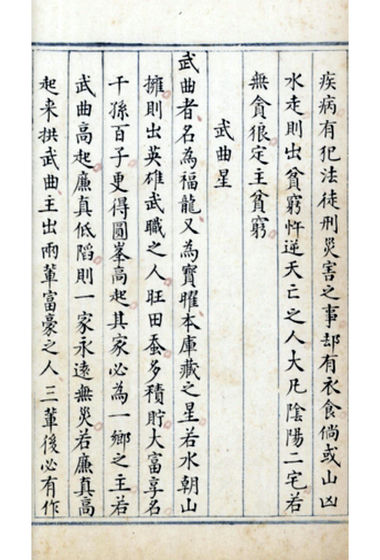 疾病有犯法徒刑災害之事却有衣食倘或山凶
水走則出貧窮忤逆夭亡之人大凡陰陽二宅若
無貪狼定主貧窮
武曲星
武曲者名為福龍又為寳曜本庫藏之星若水朝山
擁則出英雄武職之人旺田蚕多積貯大富享名
千孫百子更得圓峯高起其家必為一鄉之主若
武曲高起廉真低陷則一家永遠無災若廉真高
起来拱武曲主出兩輩富豪之人三輩後必有作